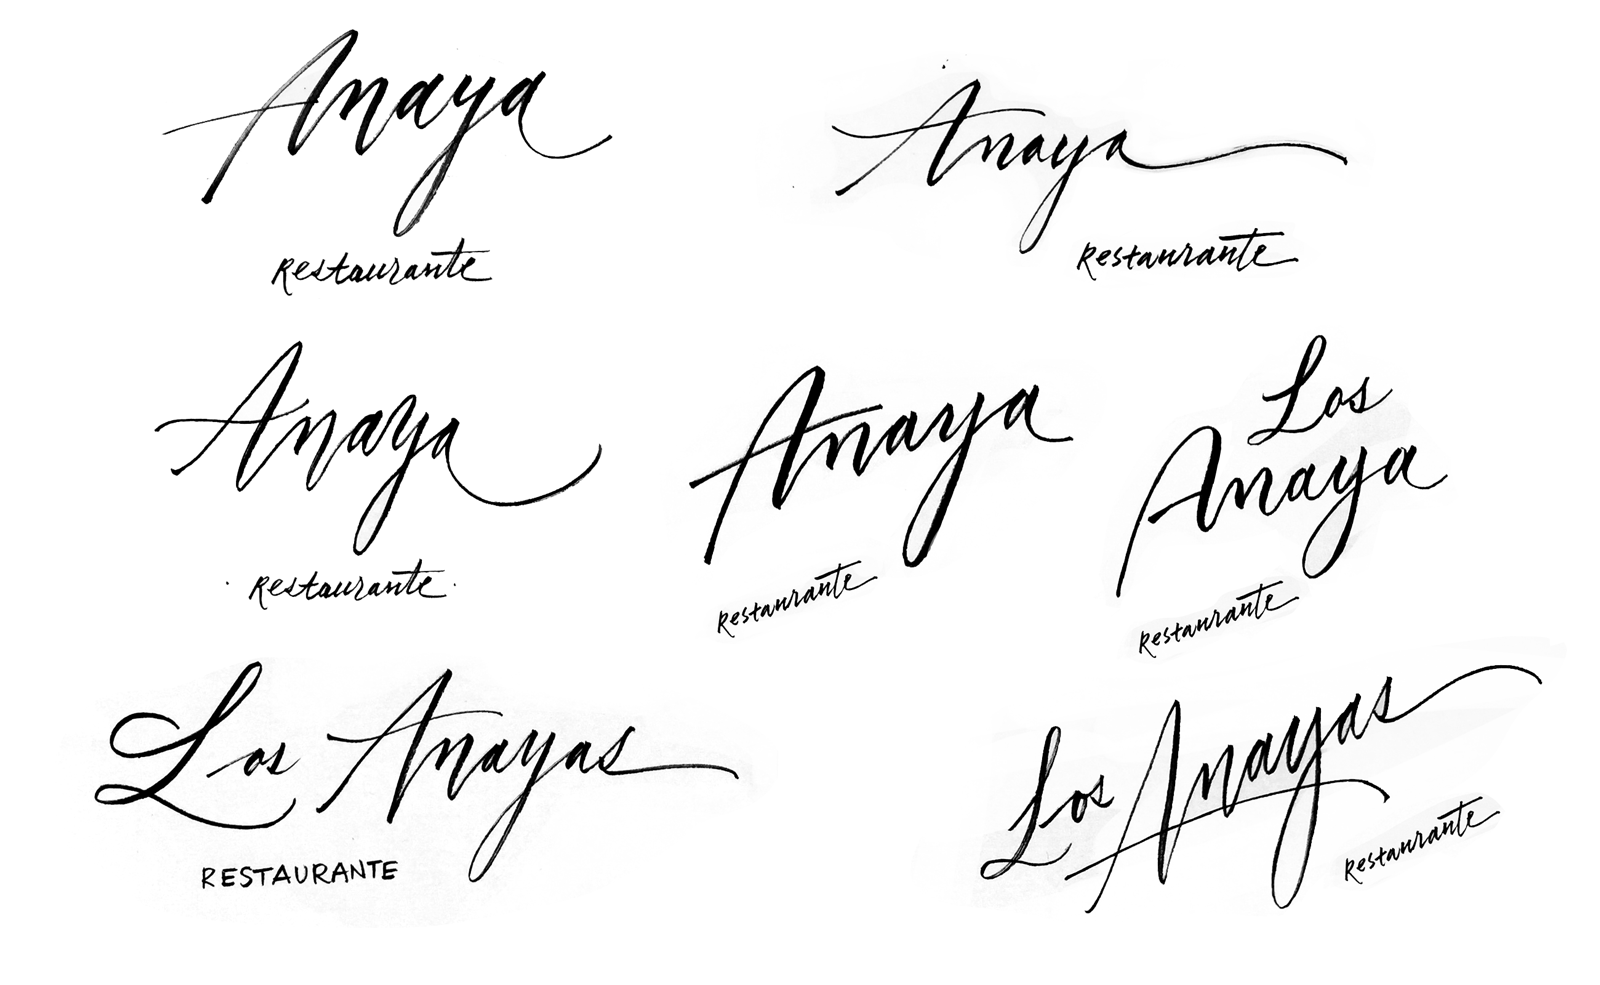 Anaya
Restaurante
Anaya
Restaurante
Anaya
Restaurante
Anaya
Restaurante
Los
Anaya
Restaurante
Los Anayas
RESTAURANTE
Los Anayas
Restaurante